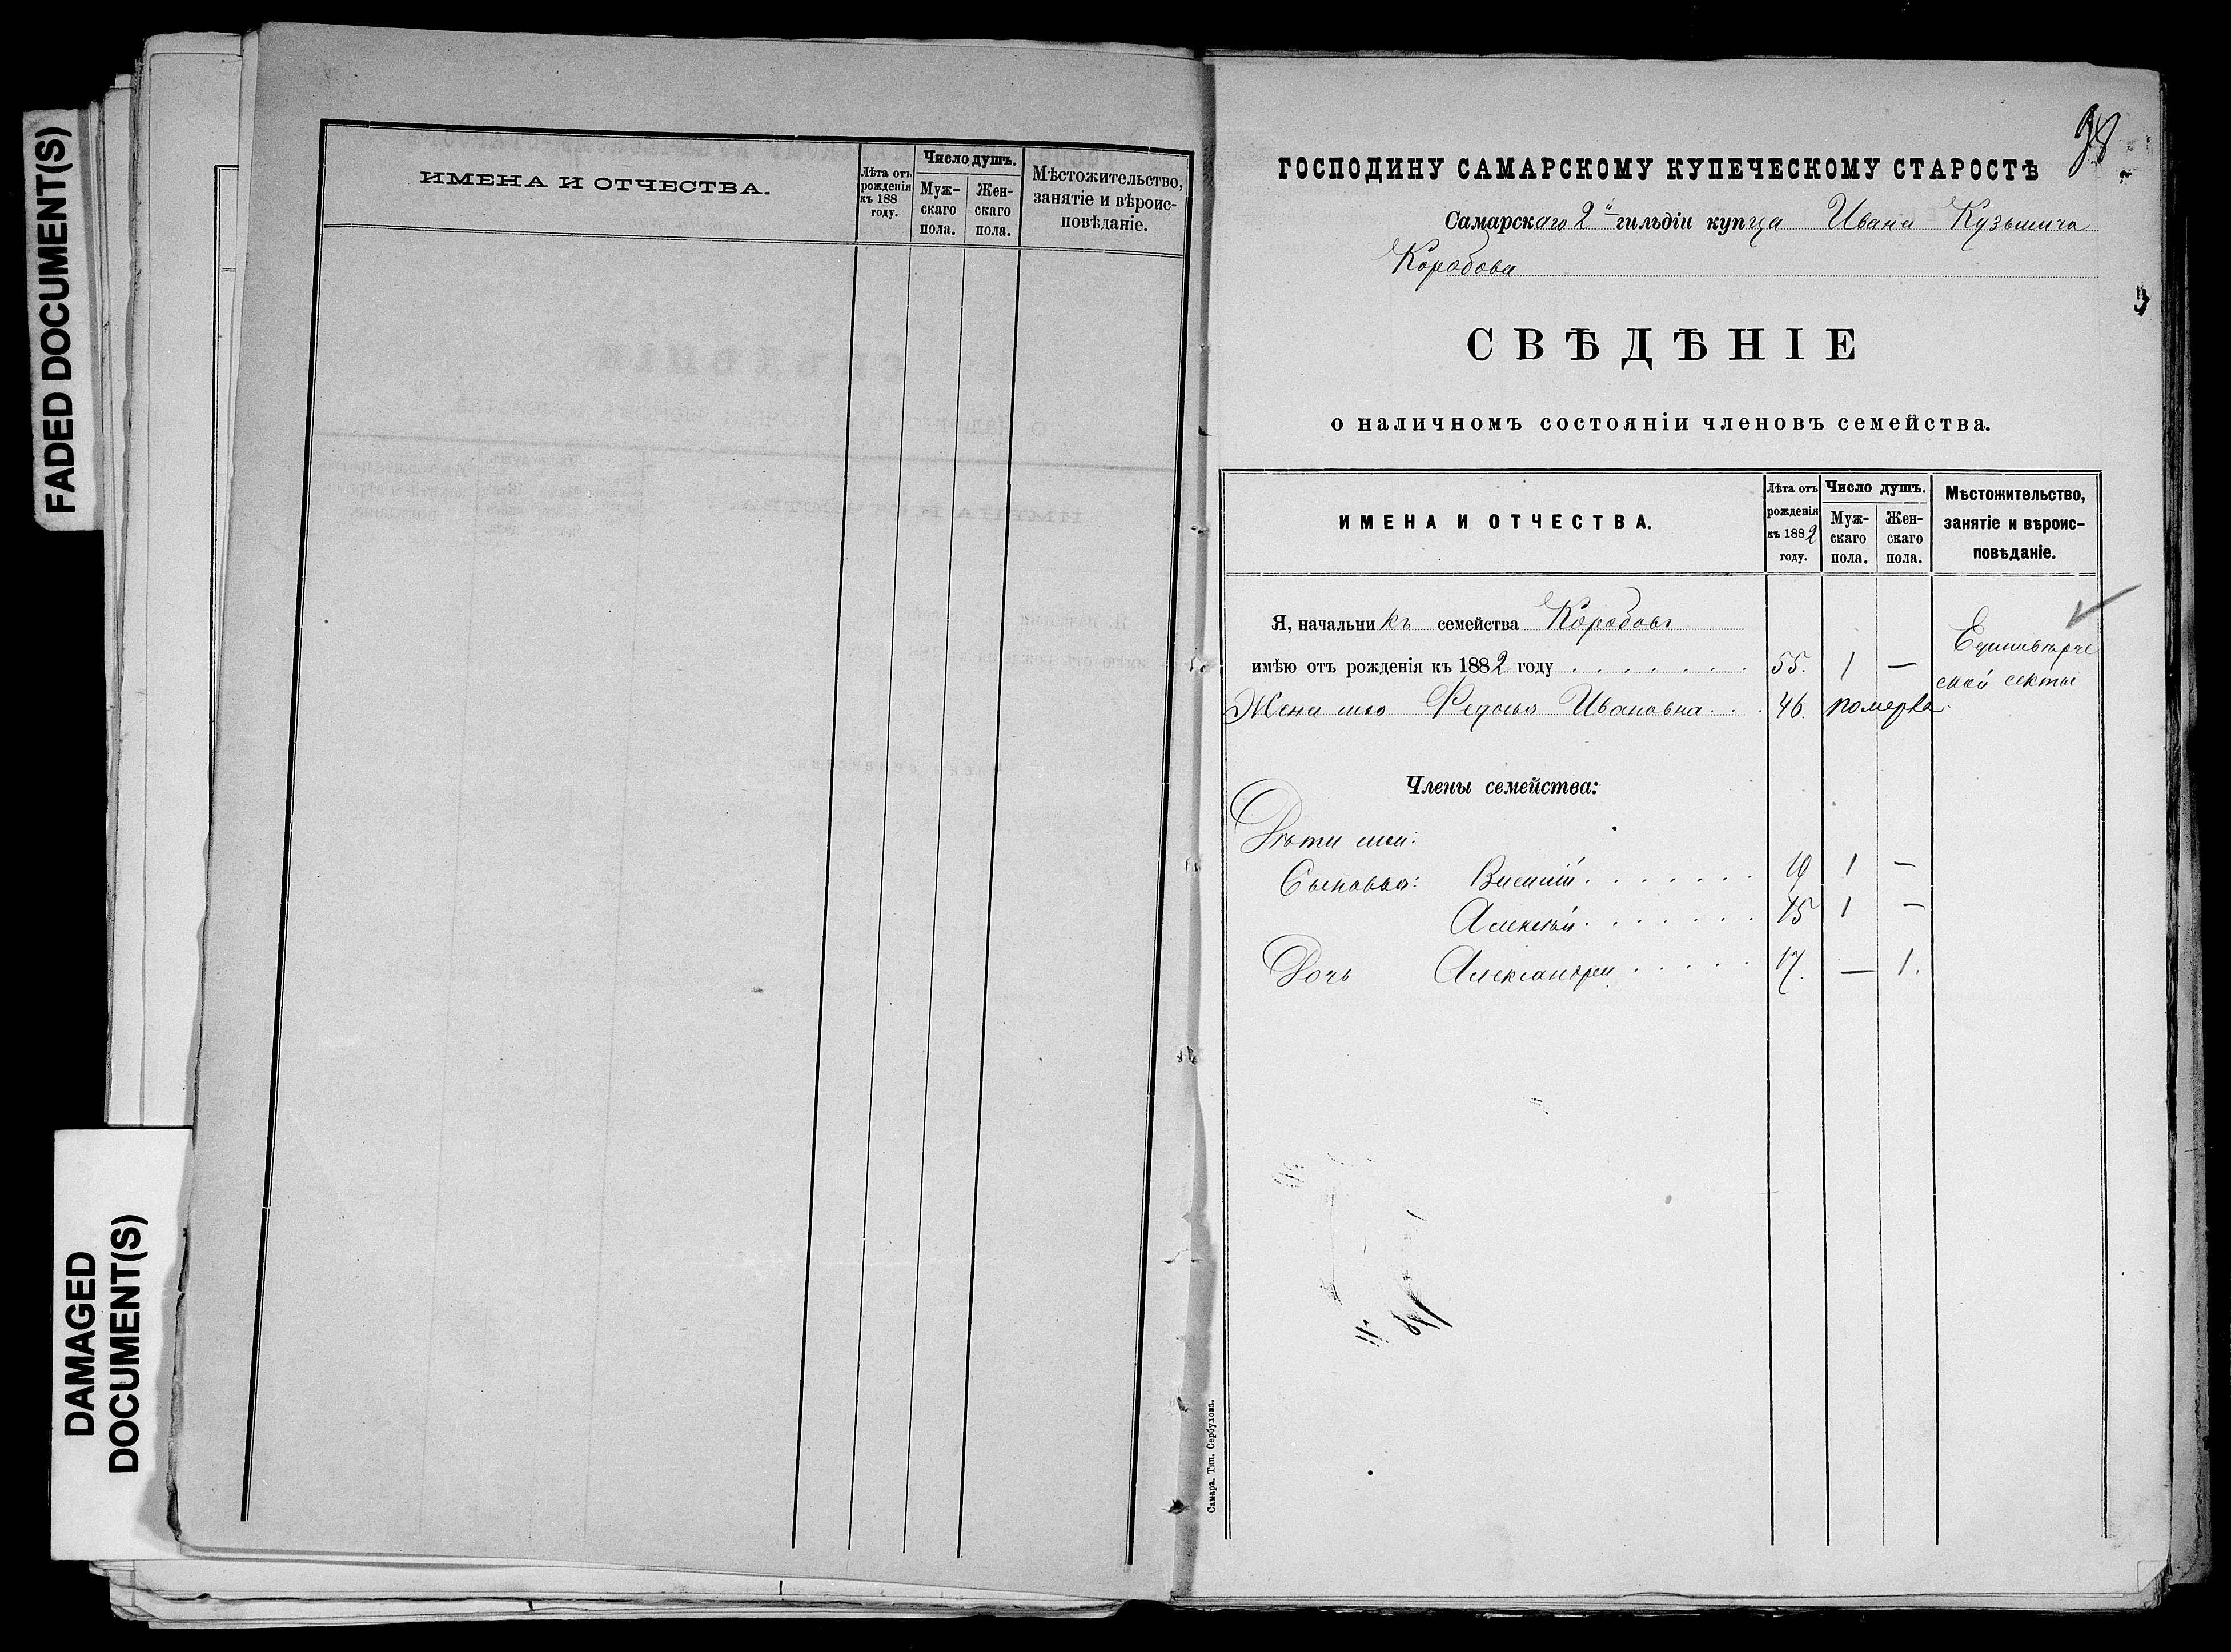 FADED DOCUMENT(S)
DAMAGED
DOCUMENT(S)
ИМЕНА И ОТЧЕСТВА.
Лѣта отъ
рожденія
къ 188
году.
Число душъ.
Муж-
скаго
пола.
Жен-
скаго
пола.
Мѣстожительство,
занятіе и вѣроис-
повѣданіе.
98
ГОСПОДИНУ САМАРСКОМУ КУПЕЧЕСКОМУ СТАРОСТѢ
Самарскаго 2й гильдіи купца Ивана Кузьмича
Коробова
СВѢДѢНІЕ
о наличномъ состояніи членовъ семейства.
ИМЕНА И ОТЧЕСТВА.
Лѣта отъ
рожденія
къ 1882
году.
Число душъ.
Муж-
скаго
пола.
Жен-
скаго
пола.
Мѣстожительство,
занятіе и вѣроис-
повѣданіе.
Я, начальникъ семейства Коробовъ
имѣю отъ рожденія къ 1882 году . . . . . . . 55. 1 —
Единовѣрче
ской секты
Жена моя Федосья Ивановна . . . 46. померла.
Члены семейства:
Дѣти мои:
Сыновья: Василій . . . . . . . 19 1 —
Алексѣй . . . . . . . 15 1 —
Дочь Александра . . . . . 17. — 1.
Самара. Тип. Сербулова.